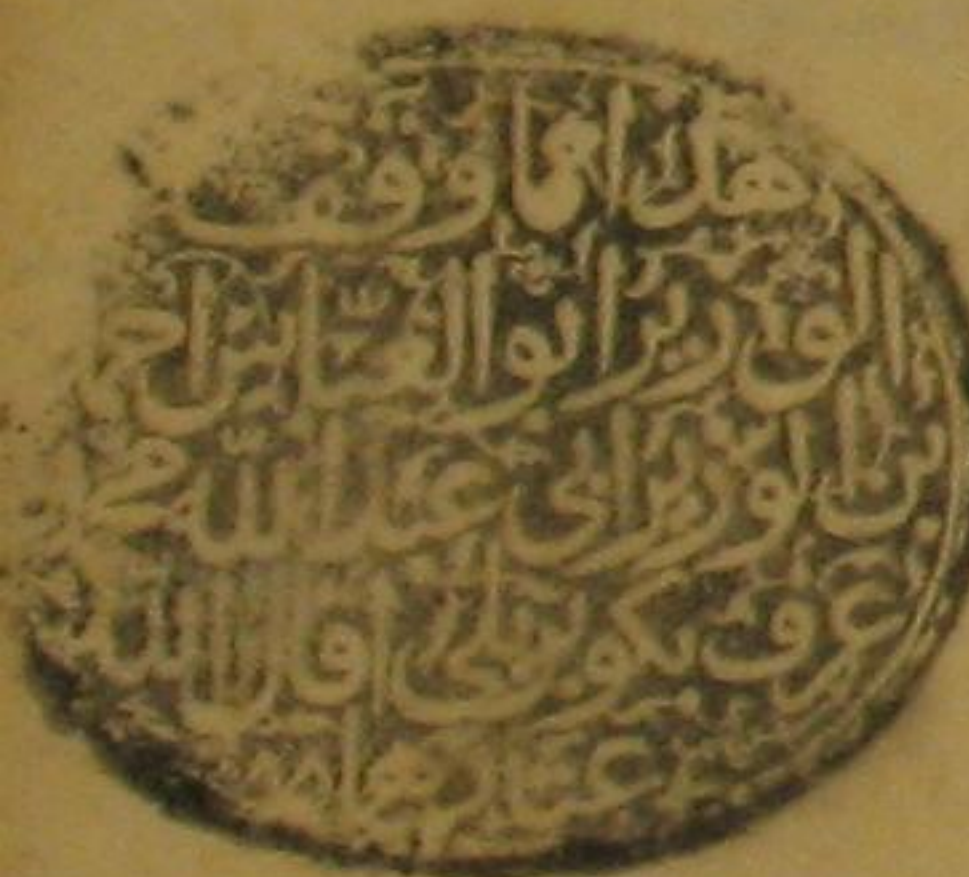 هذا مما وقف
الوزير ابو العباس احمد
بن الوزير ابي عبد الله محمد
عرف بكوبريلى اقال الله
عثارهما